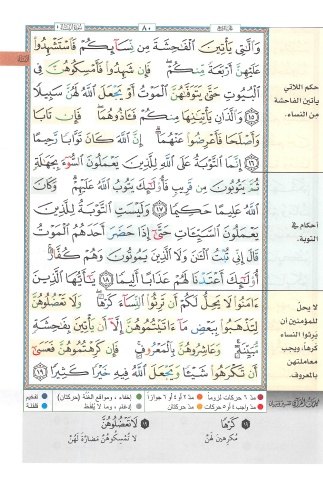 ٨٠
وَالَّٰتِي يَأْتِينَ الْفَٰحِشَةَ مِن نِّسَآئِكُمْ فَاسْتَشْهِدُوا
عَلَيْهِنَّ أَرْبَعَةً مِّنكُمْ ۖ فَإِن شَهِدُوا فَأَمْسِكُوهُنَّ فِي
الْبُيُوتِ حَتَّىٰ يَتَوَفَّىٰهُنَّ الْمَوْتُ أَوْ يَجْعَلَ اللَّهُ لَهُنَّ سَبِيلًا
١٥ وَالَّذَانِ يَأْتِيَٰنِهَا مِنكُمْ فَـَٔاذُوهُمَا ۖ فَإِن تَابَا
وَأَصْلَحَا فَأَعْرِضُوا عَنْهُمَآ ۗ إِنَّ اللَّهَ كَانَ تَوَّابًا رَّحِيمًا
١٦ إِنَّمَا التَّوْبَةُ عَلَى اللَّهِ لِلَّذِينَ يَعْمَلُونَ السُّوٓءَ بِجَهَٰلَةٍ
ثُمَّ يَتُوبُونَ مِن قَرِيبٍ فَأُو۟لَٰٓئِكَ يَتُوبُ اللَّهُ عَلَيْهِمْ ۗ وَكَانَ
اللَّهُ عَلِيمًا حَكِيمًا ١٧ وَلَيْسَتِ التَّوْبَةُ لِلَّذِينَ
يَعْمَلُونَ السَّيِّـَٔاتِ حَتَّىٰٓ إِذَا حَضَرَ أَحَدَهُمُ الْمَوْتُ
قَالَ إِنِّي تُبْتُ الْـَٰٔنَ وَلَا الَّذِينَ يَمُوتُونَ وَهُمْ كُفَّارٌ ۚ
أُو۟لَٰٓئِكَ أَعْتَدْنَا لَهُمْ عَذَابًا أَلِيمًا ١٨ يَٰٓأَيُّهَا الَّذِينَ
ءَامَنُوا لَا يَحِلُّ لَكُمْ أَن تَرِثُوا النِّسَآءَ كَرْهًا ۖ وَلَا تَعْضُلُوهُنَّ
لِتَذْهَبُوا بِبَعْضِ مَآ ءَاتَيْتُمُوهُنَّ إِلَّآ أَن يَأْتِينَ بِفَٰحِشَةٍ
مُّبَيِّنَةٍ ۚ وَعَاشِرُوهُنَّ بِالْمَعْرُوفِ ۚ فَإِن كَرِهْتُمُوهُنَّ فَعَسَىٰٓ
أَن تَكْرَهُوا شَيْـًٔا وَيَجْعَلَ اللَّهُ فِيهِ خَيْرًا كَثِيرًا ١٩
حكم اللاتي
يأتين الفاحشة
من النساء.
أحكام في
التوبة.
لا يحلّ
للمؤمنين أن
يرثوا النساء
كرهاً، ويجب
معاملتهن
بالمعروف.
مد ٦ حركات لزوماً مد ٢ أو ٤ أو ٦ جوازاً إخفاء، ومواقع الغنّة (حركتان) تفخيم
مد واجب ٤ أو ٥ حركات مد حركتان إدغام، وما لا يُلفظ قلقلة
١٩ كَرْهًا ١٩ لَا تَعْضُلُوهُنَّ
مكرهين لهنّ لا تمسكوهنّ مضارة لهنّ